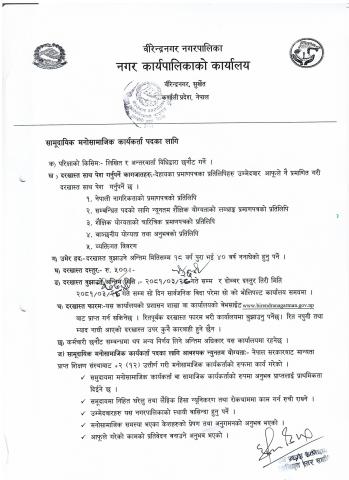 वीरेन्द्रनगर नगरपालिका
नगर कार्यपालिकाको कार्यालय
वीरेन्द्रनगर, सुर्खेत
कर्णाली प्रदेश, नेपाल
सामुदायिक मनोसामाजिक कार्यकर्ता पदका लागि
क) परीक्षाको किसिमः- लिखित र अन्तरवार्ता विधिद्वारा छनौट गर्ने ।
ख) दरखास्त साथ पेश गर्नुपर्ने कागजातहरुः-देहायका प्रमाणपत्रका प्रतिलिपिहरु उम्मेदवार आफूले नै प्रमाणित गरी
दरखास्त साथ पेश गर्नुपर्ने छ ।
१. नेपाली नागरिकताको प्रमाणपत्रको प्रतिलिपि
२. सम्बन्धित पदको लागि न्यूनतम शैक्षिक योग्यताको लब्धाङ्क प्रमाणपत्रको प्रतिलिपि
३. शैक्षिक योग्यताको चारित्रिक प्रमाणपत्रको प्रतिलिपि
४. वाञ्छनीय योग्यता तथा अनुभवको प्रतिलिपि
५. व्यक्तिगत विवरण
ग) उमेर हदः-दरखास्त बुझाउने अन्तिम मितिसम्म १८ वर्ष पुरा भई ४० वर्ष ननाघेको हुनु पर्ने ।
घ) दरखास्त दस्तुरः- रु. ५००।-
ङ) दरखास्त बुझाउने अन्तिम मिति :- २०८१/०३/ गते सम्म र दोब्बर दस्तुर तिरी मिति
२०८१/०३/ गते सम्म सो दिन सार्वजनिक विदा परेमा सो को भोलिपल्ट कार्यालय समयमा ।
च) दरखास्त फारमः-यस कार्यालयको प्रशासन शाखा वा कार्यालयको वेभसाईट www.birendranagarmun.gov.np
बाट प्राप्त गर्न सकिनेछ । रितपुर्वक दरखास्त फारम भरी कार्यालयमा बुझाउनु पर्नेछ। रित नपुगी तथा
म्याद नाघी आएको दरखास्त उपर कुनै कारवाही हुने छैन ।
छ) कर्मचारी छनौट सम्बन्धमा थप अन्य निर्णय लिने अन्तिम अधिकार यस कार्यालयमा रहनेछ ।
ज) सामुदायिक मनोसामाजिक कार्यकर्ता पदका लागि आवश्यक न्यूनतम योग्यताः- नेपाल सरकारबाट मान्यता
प्राप्त शिक्षण संस्थाबाट +२ (१२) उत्तीर्ण गरी मनोसामाजिक कार्यकर्ताको रुपमा कार्य गरेको ।
✓ समुदायमा मनोसामाजिक कार्यकर्ता वा सामाजिक कार्यकर्ताको रुपमा अनुभव प्राप्तलाई प्राथमिकता
दिईने छ ।
✓ समुदायमा निहित घरेलु तथा लैङ्गिक हिंसा न्यूनिकरण तथा रोकथाममा काम गर्न रुची राख्ने ।
✓ उम्मेदवारहरु यस नगरपालिकाको स्थायी बासिन्दा हुनु पर्ने ।
✓ मनोसामाजिक समस्या भएका केशहरुको प्रेषण तथा अनुगमनको अनुभव भएको ।
✓ आफुले गरेको कामको प्रतिवेदन बनाउने अनुभव भएको ।